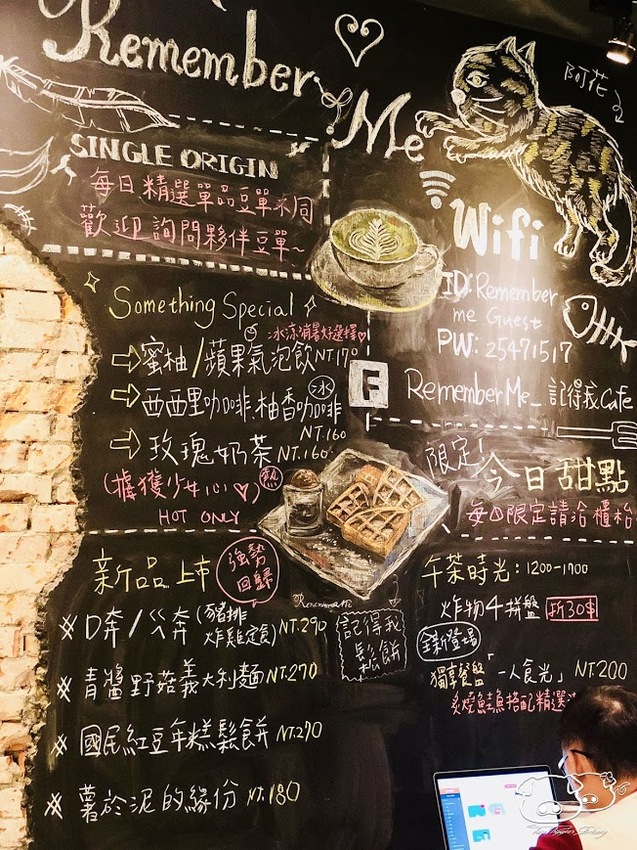 Remember
Me
阿花
SINGLE ORIGIN
每日精選單品豆單不同
歡迎詢問夥伴豆單~
Wifi
ID: Remember
me Guest
PW: 25471517
Something Special
冰涼消暑好選擇♡
蜜柚/蘋果氣泡飲 NT.170
西西里咖啡.柚香咖啡 冰
NT.160
玫瑰奶茶 NT.160
(擄獲少女心♡) 熱
HOT ONLY
F RememberMe_記得我Cafe
限定!
今日甜點
每日限定請洽櫃枱
新品上市
強勢
回歸
D奔/ㄍ奔 (豬排
炸雞定食) NT.290
青醬野菇義大利麵 NT.270
國民紅豆年糕鬆餅 NT.270
薯於泥的緣份 NT.180
Remember me
記得我
鬆餅
午茶時光:1200-1700
炸物4拼盤 折30$
全新登場
獨享餐盤「一人食光」 NT.200
炙燒鮭魚搭配精選